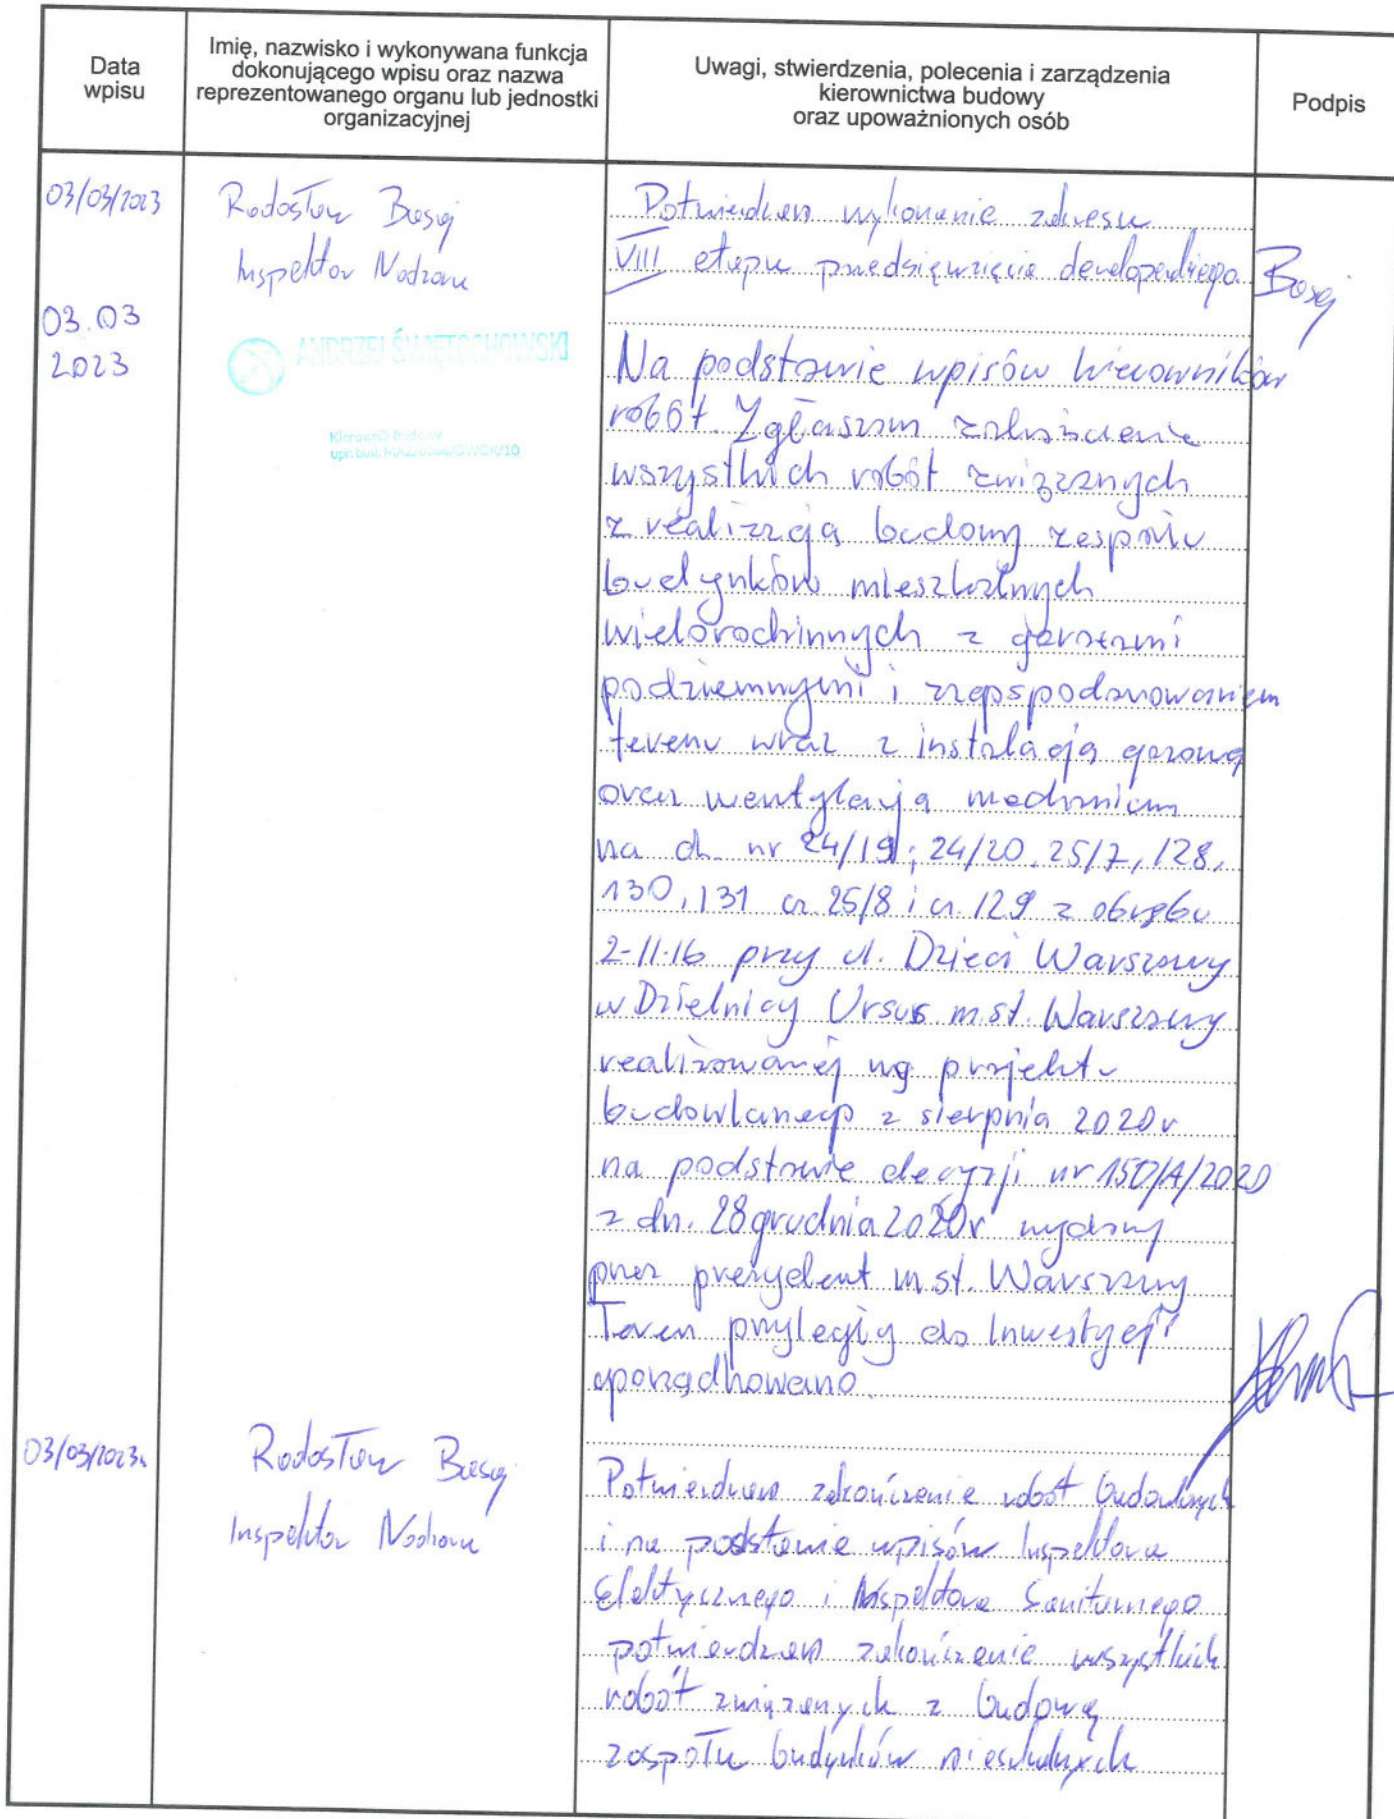 Data
wpisu
Imię, nazwisko i wykonywana funkcja
dokonującego wpisu oraz nazwa
reprezentowanego organu lub jednostki
organizacyjnej
Uwagi, stwierdzenia, polecenia i zarządzenia
kierownictwa budowy
oraz upoważnionych osób
Podpis
03/03/2023
Radosław
Inspektor Nadzoru
Potwierdzam wykonanie zakresu
VIII etapu przedsięwzięcia deweloperskiego
03.03
2023
ANDRZEJ ŚWIĘTOCHOWSKI
Kierownik Budowy
upr. bud.
Na podstawie wpisów kierowników
robót. Zgłaszam zakończenie
wszystkich robót związanych
z realizacją budowy zespołu
budynków mieszkalnych
wielorodzinnych z garażami
podziemnymi i zagospodarowaniem
terenu wraz z instalacją gazową
oraz wentylacją
na dz. nr 24/19; 24/20, 25/7, 128,
130, 131 cz. 25/8 i cz. 129 z obrębu
2-11-16 przy ul. Dzieci Warszawy
w Dzielnicy Ursus m.st. Warszawy
realizowanej wg projektu
budowlanego z sierpnia 2020r
na podstawie decyzji nr 150/A/2020
z dn. 28 grudnia 2020r wydanej
przez prezydent m.st. Warszawy
Teren przyległy do Inwestycji
uporządkowano.
03/03/2023r.
Radosław
Inspektor Nadzoru
Potwierdzam zakończenie robót budowlanych
i na podstawie wpisów Inspektora
Elektycznego i Inspektora Sanitarnego
potwierdzam zakończenie wszystkich
robót związanych z budową
zespołu budynków mieszkalnych